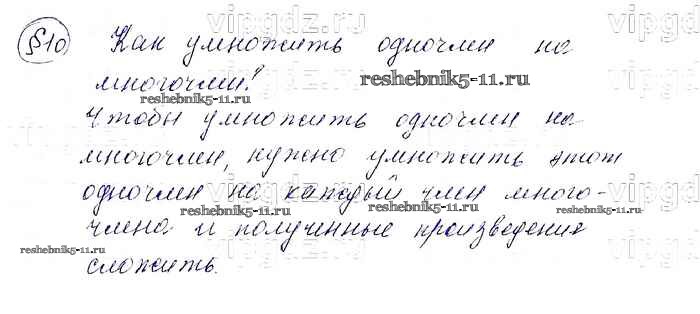 vipgdz.ru
§10 Как умножить одночлен на
многочлен?
reshebnik5-11.ru
reshebnik5-11.ru
Чтобы умножить одночлен на
многочлен, нужно умножить этот
одночлен на каждый член много-
reshebnik5-11.ru
reshebnik5-11.ru
члена и полученные произведения
reshebnik5-11.ru
сложить.
reshebnik5-11.ru